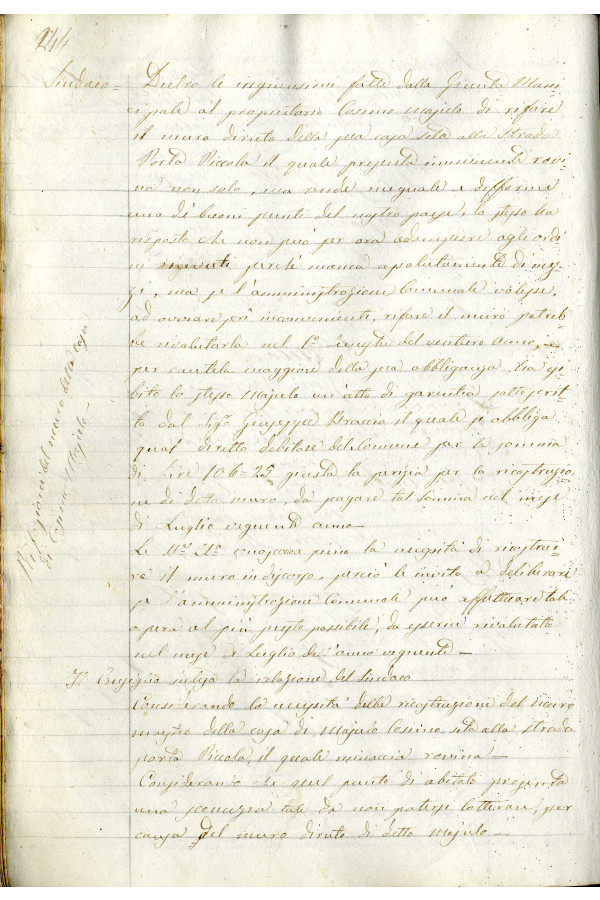 244
Sindaco = Dietro le ingiunzioni fatte dalla Giunta Muni
cipale al proprietario Cosimo Majulo di rifare
il muro diruto della sua casa sita alla Strada
Porta Piccola il quale presenta imminente rovi
na non solo, ma rende ineguale e difforme
uno dè buoni punti del nostro paese, lo stesso ha
risposto che non può per ora adempiere agli ordi
ni perchè manca assolutamente di mez
zi, ma se l'amministrazione Comunale volesse,
ad ovviare inconvenienti, rifare il muro potreb
be rivalutarla nel 1º Semestre del venturo anno, e
per cautela maggiore della sua obbliganza, ha esi
bito lo stesso Majulo un'atto di garentia sottoscrit
to dal Sigr Giuseppe Braccio il quale si obbliga
qual diretto debitore del Comune per la somma
di lire 106=25 giusta la perizia per la ricostruzio
ne di detto muro, da pagare tal somma nel mese
di Luglio vegnente anno—
Le conoscono pure la necessità di ricostrui
re il muro in discorso, perciò le invito a deliberare
se l'amministrazione Comunale può effettuare tale
opera al più presto possibile, da esserne rivalutata
nel mese di Luglio di anno vegnente—
Il Consiglio intesa la relazione del Sindaco
Considerando la necessità della ricostruzione del muro
maestro della casa di Majulo Cosimo sita alla strada
porta Piccola, il quale minaccia rovina—
Considerando che quel punto di abitato presenta
una sconcezza tale da non potersi tollerare, per
causa del muro diruto di detto Majulo—
Rifazione del muro della casa
di Cosimo Majulo—